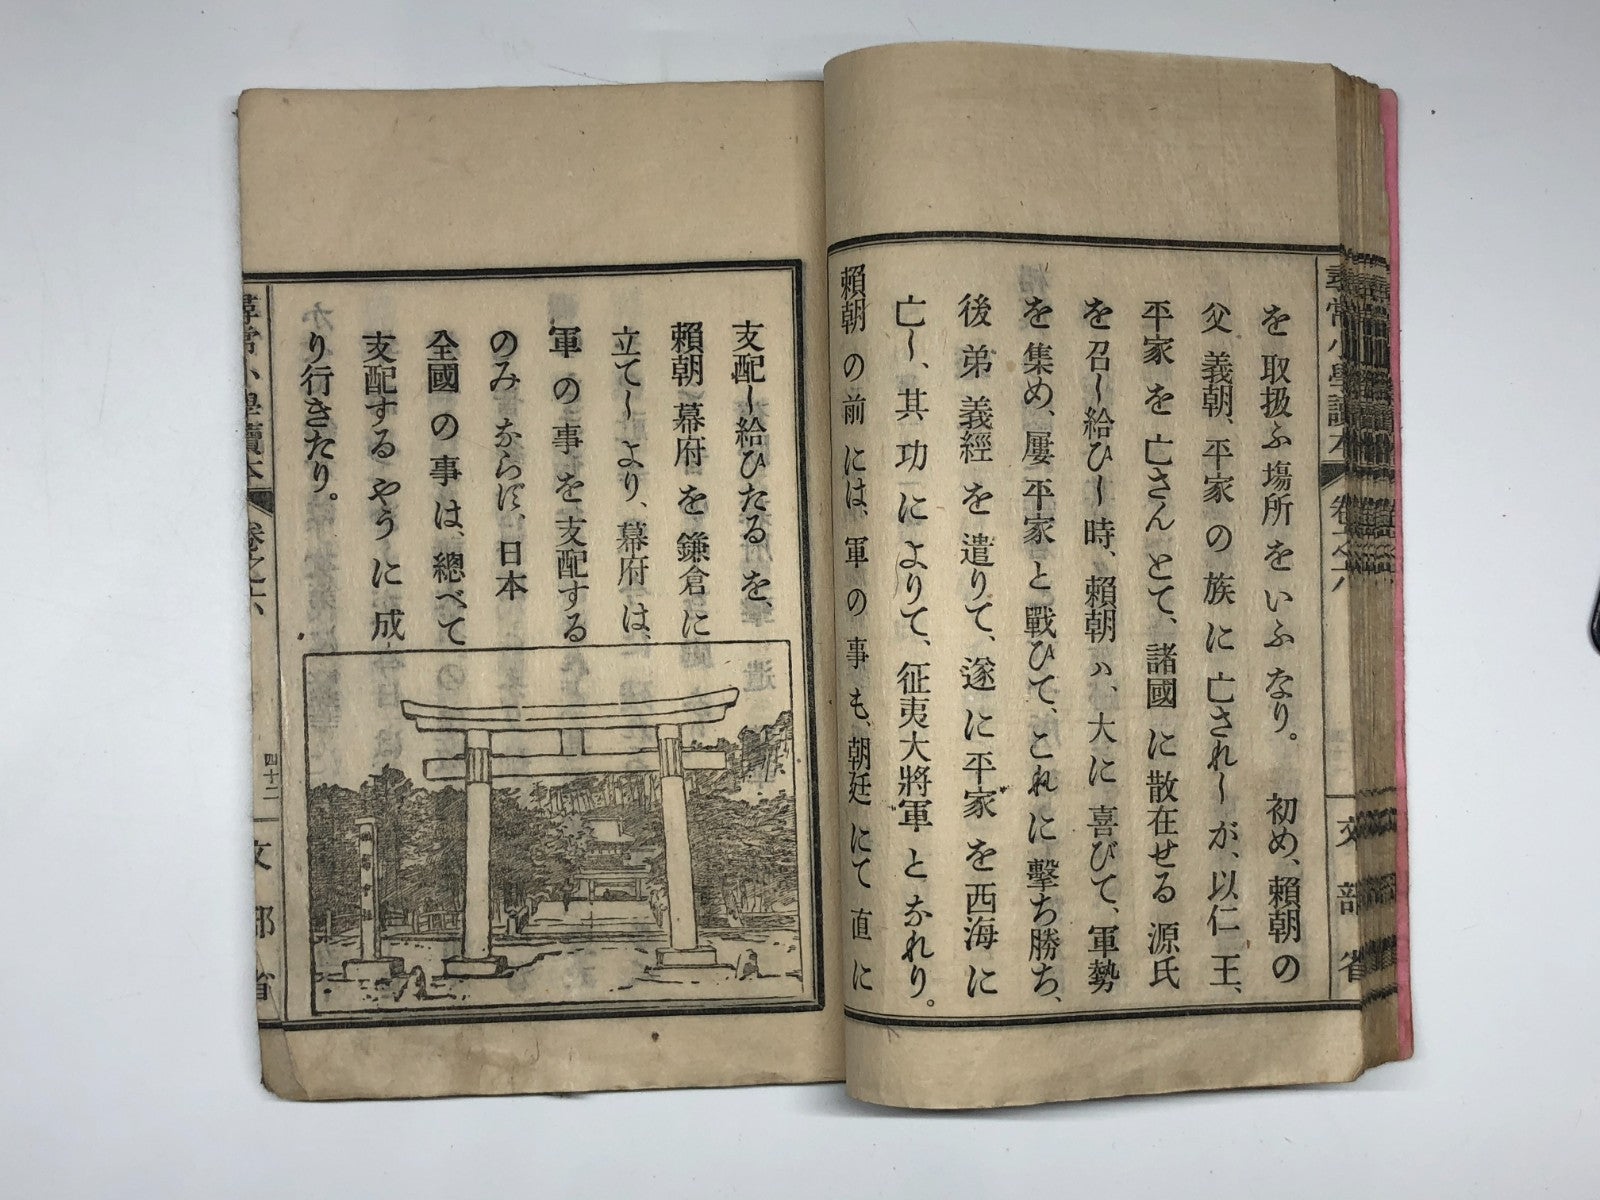 を取扱ふ場所をいふなり。初め、賴朝の
父義朝、平家の族に亡されしが、以仁王、
平家を亡さんとて、諸國に散在せる源氏
を召し給ひし時、賴朝ハ、大に喜びて、軍勢
を集め、屢平家と戰ひて、これに擊ち勝ち、
後弟義經を遣りて、遂に平家を西海に
亡し、其功によりて、征夷大將軍となれり。
賴朝の前には、軍の事も、朝廷にて直に
支配し給ひたるを、
賴朝幕府を鎌倉に
立てしより、幕府は、
軍の事を支配する
のみならず、日本
全國の事は、總べて
支配するやうに成
り行きたり。
尋常小學讀本
卷之六
四十二
文部省